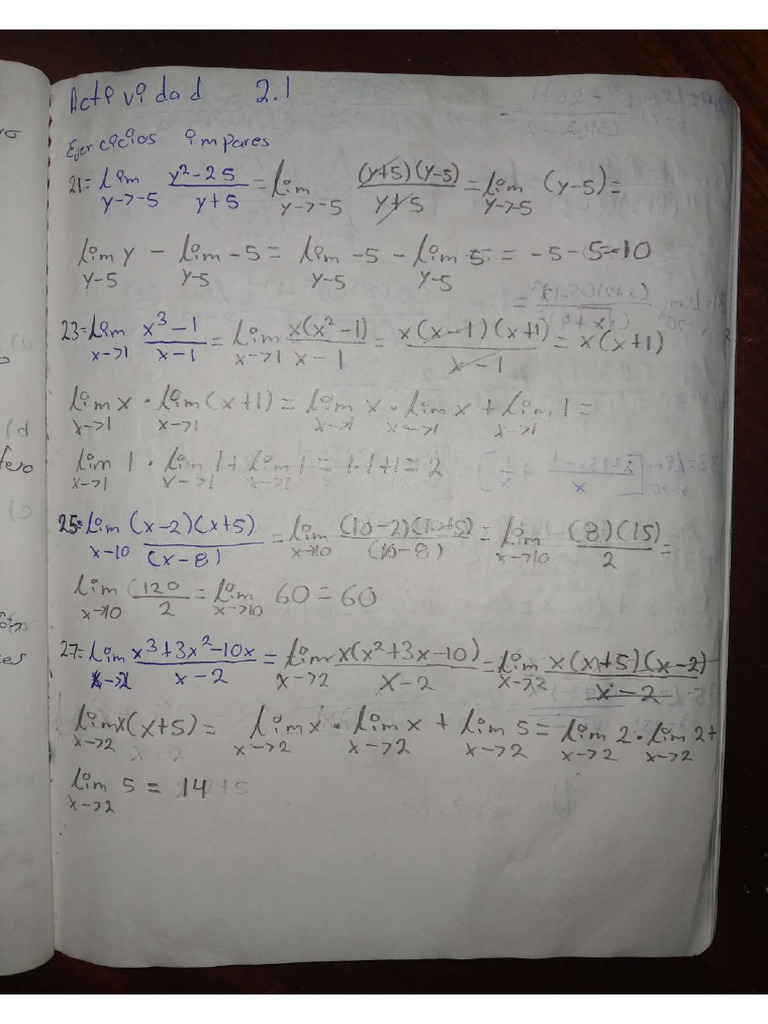 Actividad 2.1
Ejercicios impares
21= lim y->-5 (y²-25)/(y+5) = lim y->-5 ((y+5)(y-5))/(y+5) = lim y->-5 (y-5) =
lim y-5 y - lim y-5 -5 = lim y-5 -5 - lim y-5 5 = -5-5=-10
23= lim x->1 (x³-1)/(x-1) = lim x->1 (x(x²-1))/(x-1) = (x(x-1)(x+1))/(x-1) = x(x+1)
lim x->1 x · lim x->1 (x+1) = lim x->1 x · lim x->1 x + lim x->1 1 =
lim x->1 1 · lim x->1 1 + lim x->1 1 = 1·1+1=2
25= lim x-10 ((x-2)(x+5))/(x-8) = lim x->10 ((10-2)(10+5))/(10-8) = lim x->10 ((8)(15))/2 =
lim x->10 (120/2 = lim x->10 60 = 60
27= lim x->2 (x³+3x²-10x)/(x-2) = lim x->2 (x(x²+3x-10))/(x-2) = lim x->2 (x(x+5)(x-2))/(x-2)
lim x->2 x(x+5) = lim x->2 x · lim x->2 x + lim x->2 5 = lim x->2 2 · lim x->2 2 +
lim x->2 5 = 14